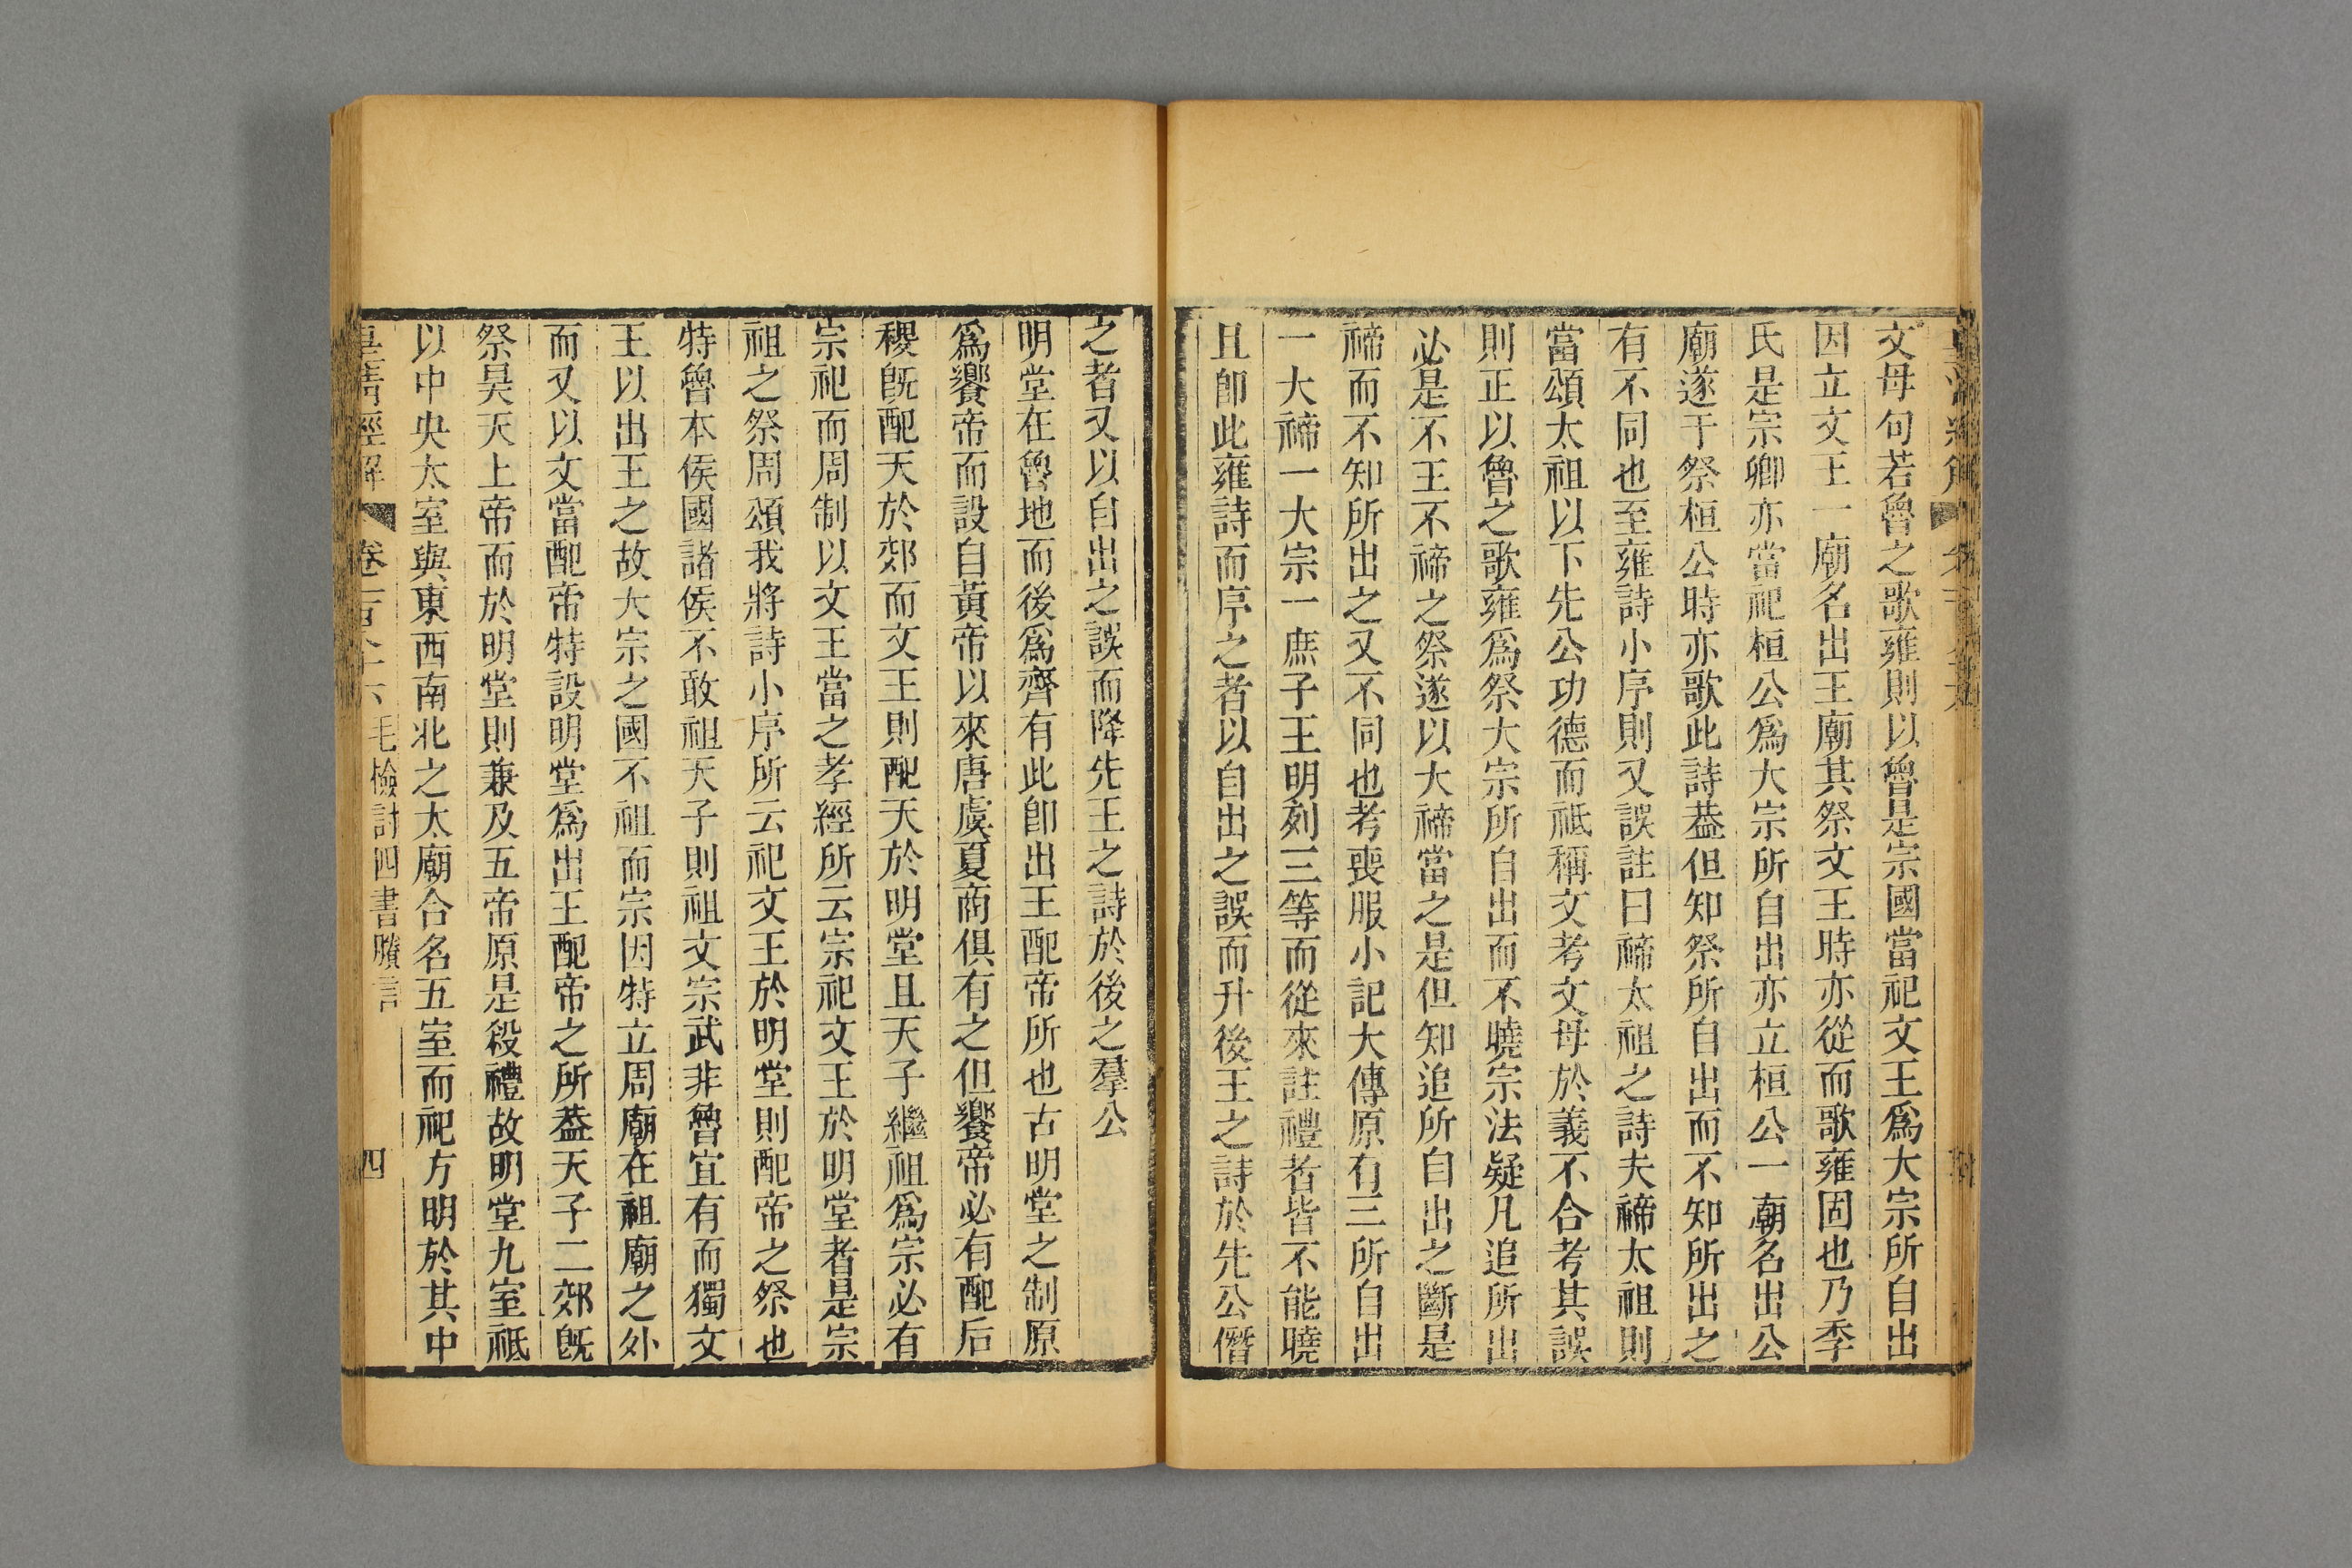 文母句若魯之歌雍則以魯是宗國當祀文王爲大宗所自出
因立文王一廟名出王廟其祭文王時亦從而歌雍固也乃季
氏是宗卿亦當祀桓公爲大宗所自出亦立桓公一廟名出公
廟遂于祭桓公時亦歌此詩葢但知祭所自出而不知所出之
有不同也至雍詩小序則又誤註曰禘太祖之詩夫禘太祖則
當頌太祖以下先公功德而祗稱文考文母於義不合考其誤
則正以魯之歌雍爲祭大宗所自出而不曉宗法疑凡追所出
必是不王不禘之祭遂以大禘當之是但知追所自出之斷是
禘而不知所出之又不同也考喪服小記大傳原有三所自出
一大禘一大宗一庶子王明列三等而從來註禮者皆不能曉
且卽此雍詩而序之者以自出之誤而升後王之詩於先公僭
之者又以自出之誤而降先王之詩於後之羣公
明堂在魯地而後爲齊有此卽出王配帝所也古明堂之制原
爲饗帝而設自黃帝以來唐虞夏商俱有之但饗帝必有配后
稷旣配天於郊而文王則配天於明堂且天子繼祖爲宗必有
宗祀而周制以文王當之孝經所云宗祀文王於明堂者是宗
祖之祭周頌我將詩小序所云祀文王於明堂則配帝之祭也
特魯本侯國諸侯不敢祖天子則祖文宗武非魯宜有而獨文
王以出王之故大宗之國不祖而宗因特立周廟在祖廟之外
而又以文當配帝特設明堂爲出王配帝之所葢天子二郊旣
祭昊天上帝而於明堂則兼及五帝原是殺禮故明堂九室祗
以中央太室與東西南北之太廟合名五室而祀方明於其中
皇清經解 卷一百八十六 毛檢討四書賸言 四